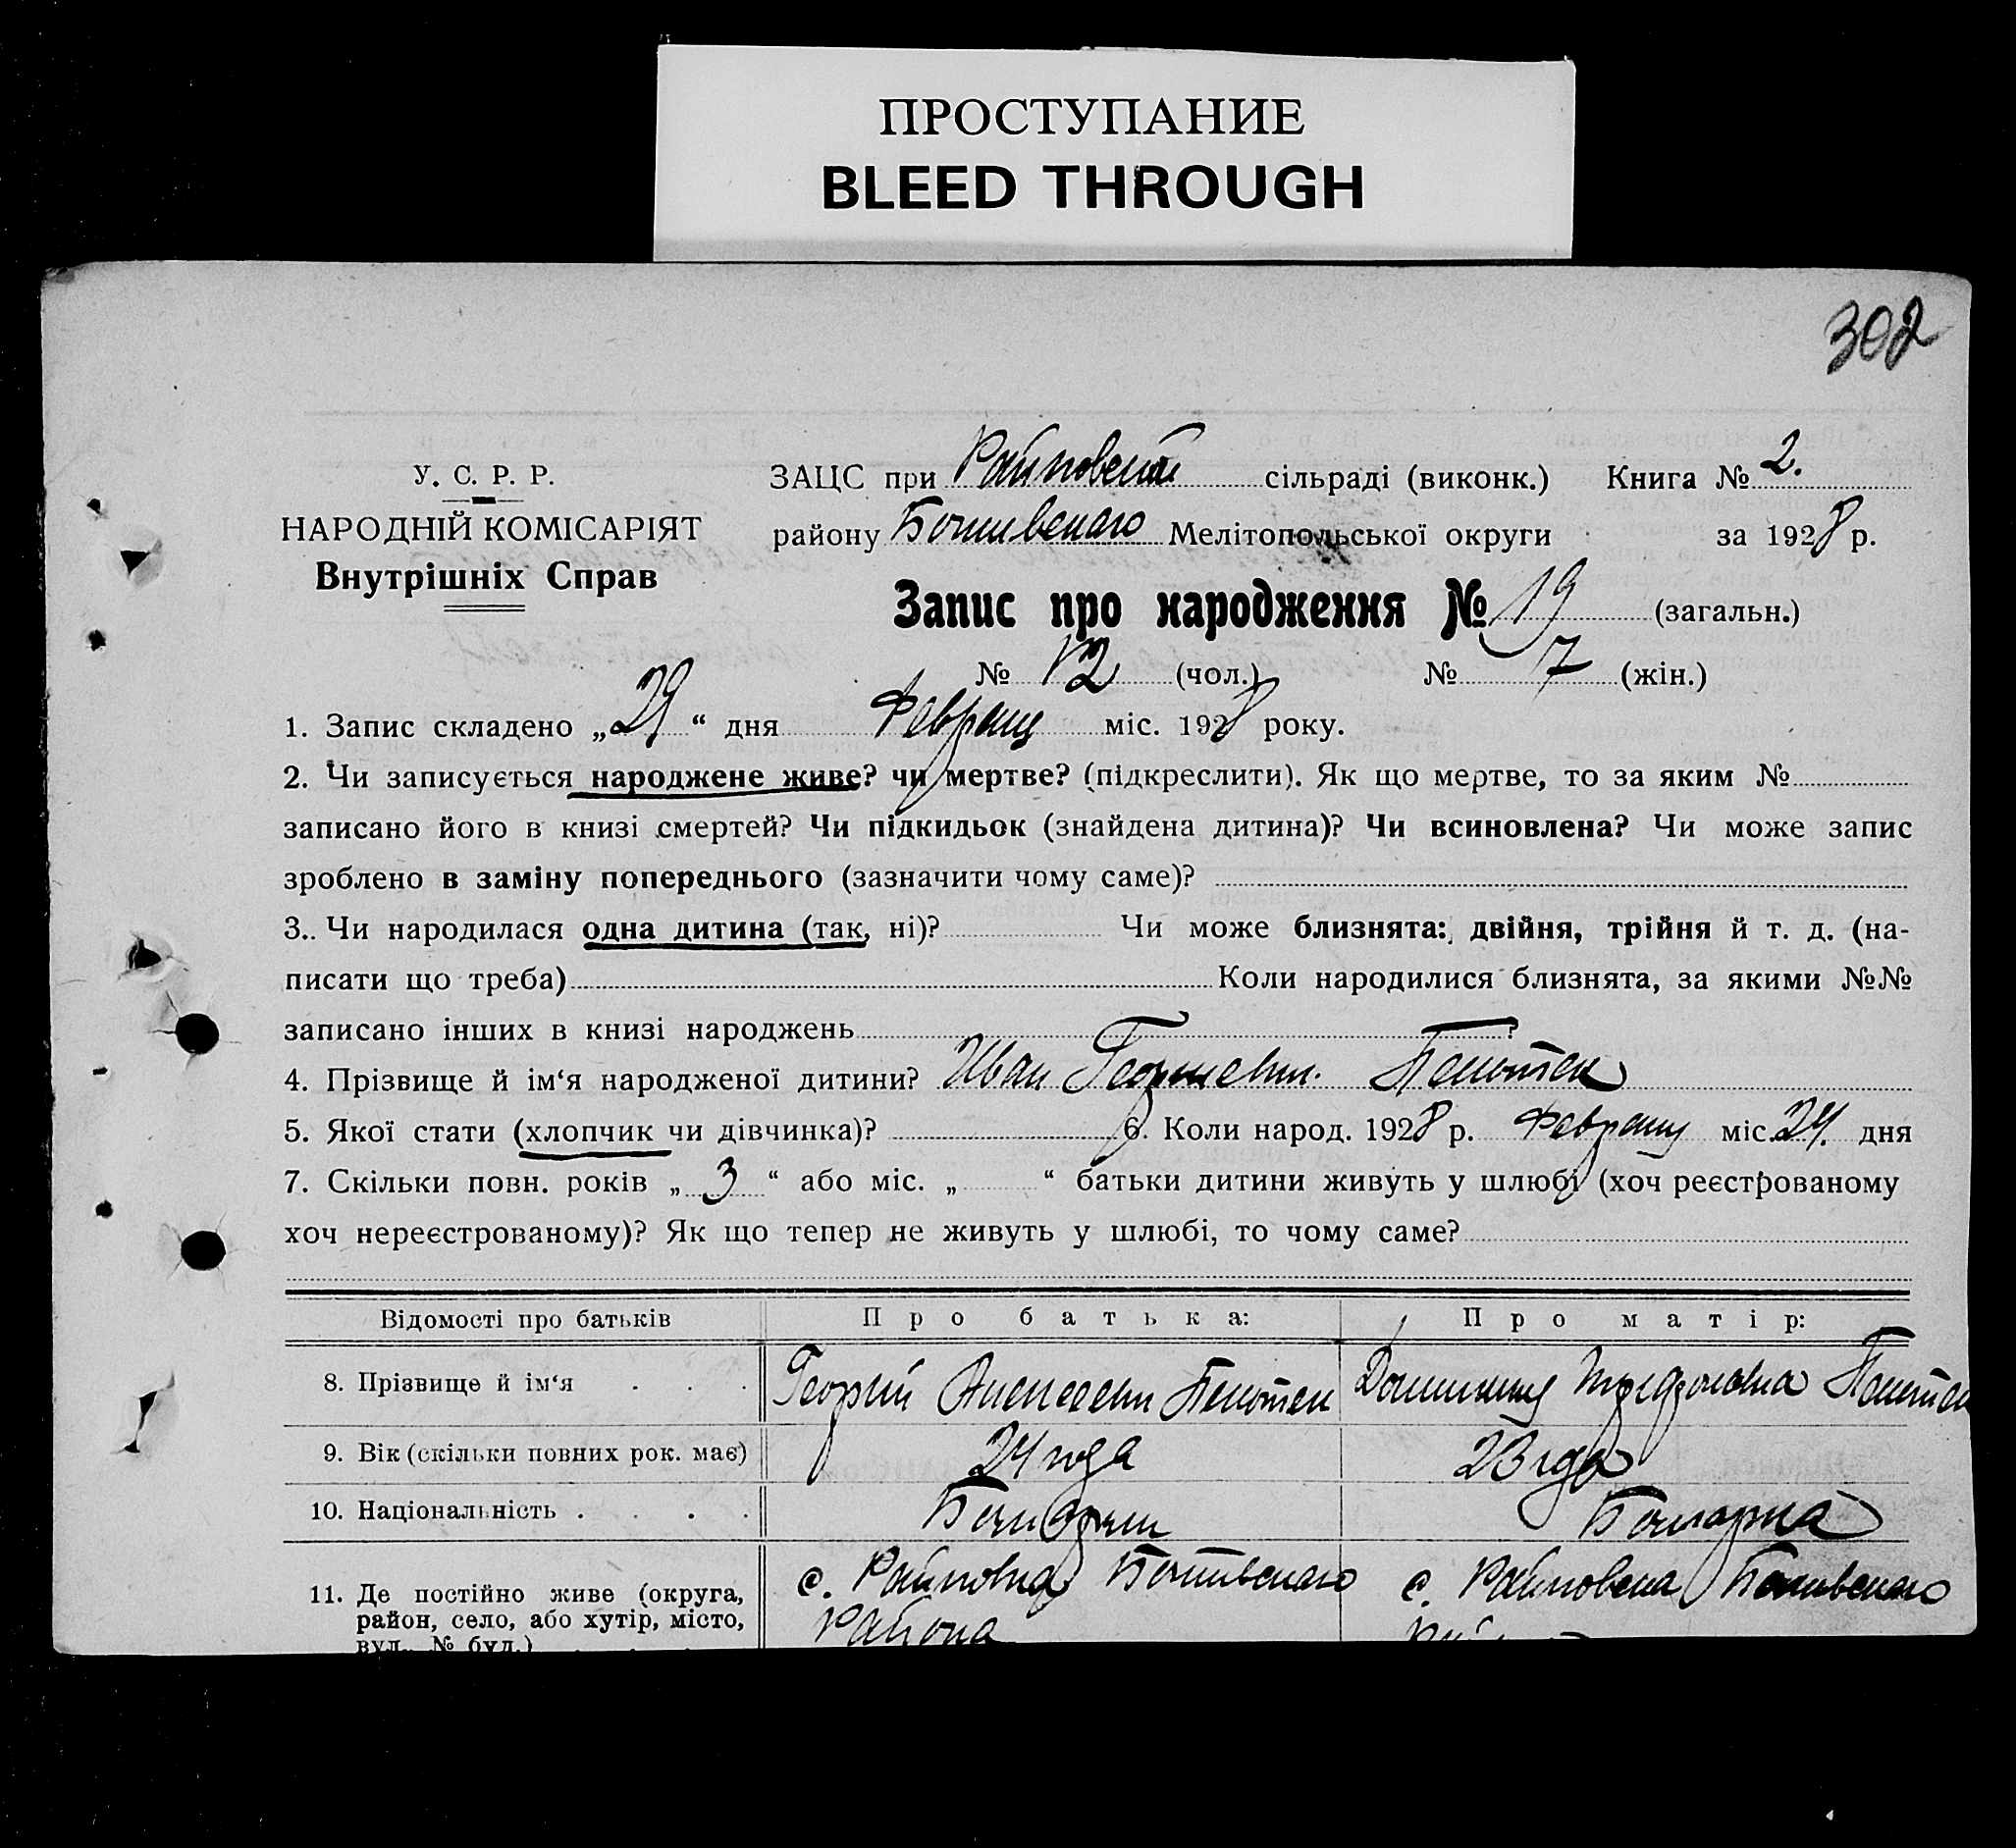 ПРОСТУПАНИЕ
BLEED THROUGH
302
У. С. Р. Р.
НАРОДНІЙ КОМІСАРІЯТ
Внутрішніх Справ
ЗАЦС при Райновской сільраді (виконк.) Книга № 2.
району Ботивского Мелітопольської округи за 1928 р.
Запис про народження № 19 (загальн.)
№ 12 (чол.) № 7 (жін.)
1. Запис складено „29“ дня Февраля міс. 1928 року.
2. Чи записується народжене живе? чи мертве? (підкреслити). Як що мертве, то за яким №
записано його в книзі смертей? Чи підкидьок (знайдена дитина)? Чи всиновлена? Чи може запис
зроблено в заміну попереднього (зазначити чому саме)?
3. Чи народилася одна дитина (так, ні)? Чи може близнята: двійня, трійня й т. д. (на-
писати що треба) Коли народилися близнята, за якими №№
записано інших в книзі народжень ?
4. Прізвище й ім‘я народженої дитини? Иван Георгиевич
5. Якої стати (хлопчик чи дівчинка)? 6. Коли народ. 1928 р. Февраля міс. 24. дня
7. Скільки повн. років „3“ або міс. „ “ батьки дитини живуть у шлюбі (хоч реєстрованому
хоч нереєстрованому)? Як що тепер не живуть у шлюбі, то чому саме?
Відомості про батьків Про батька: Про матір:
8. Прізвище й ім‘я Георгий Алексеевич
9. Вік (скільки повних рок. має) 24 года 23 года
10. Національність Болгарин Болгарка
11. Де постійно живе (округа, район, село, або хутір, місто, вул., № буд.) с. Райновка Ботивского Района с. Райновка Ботивского